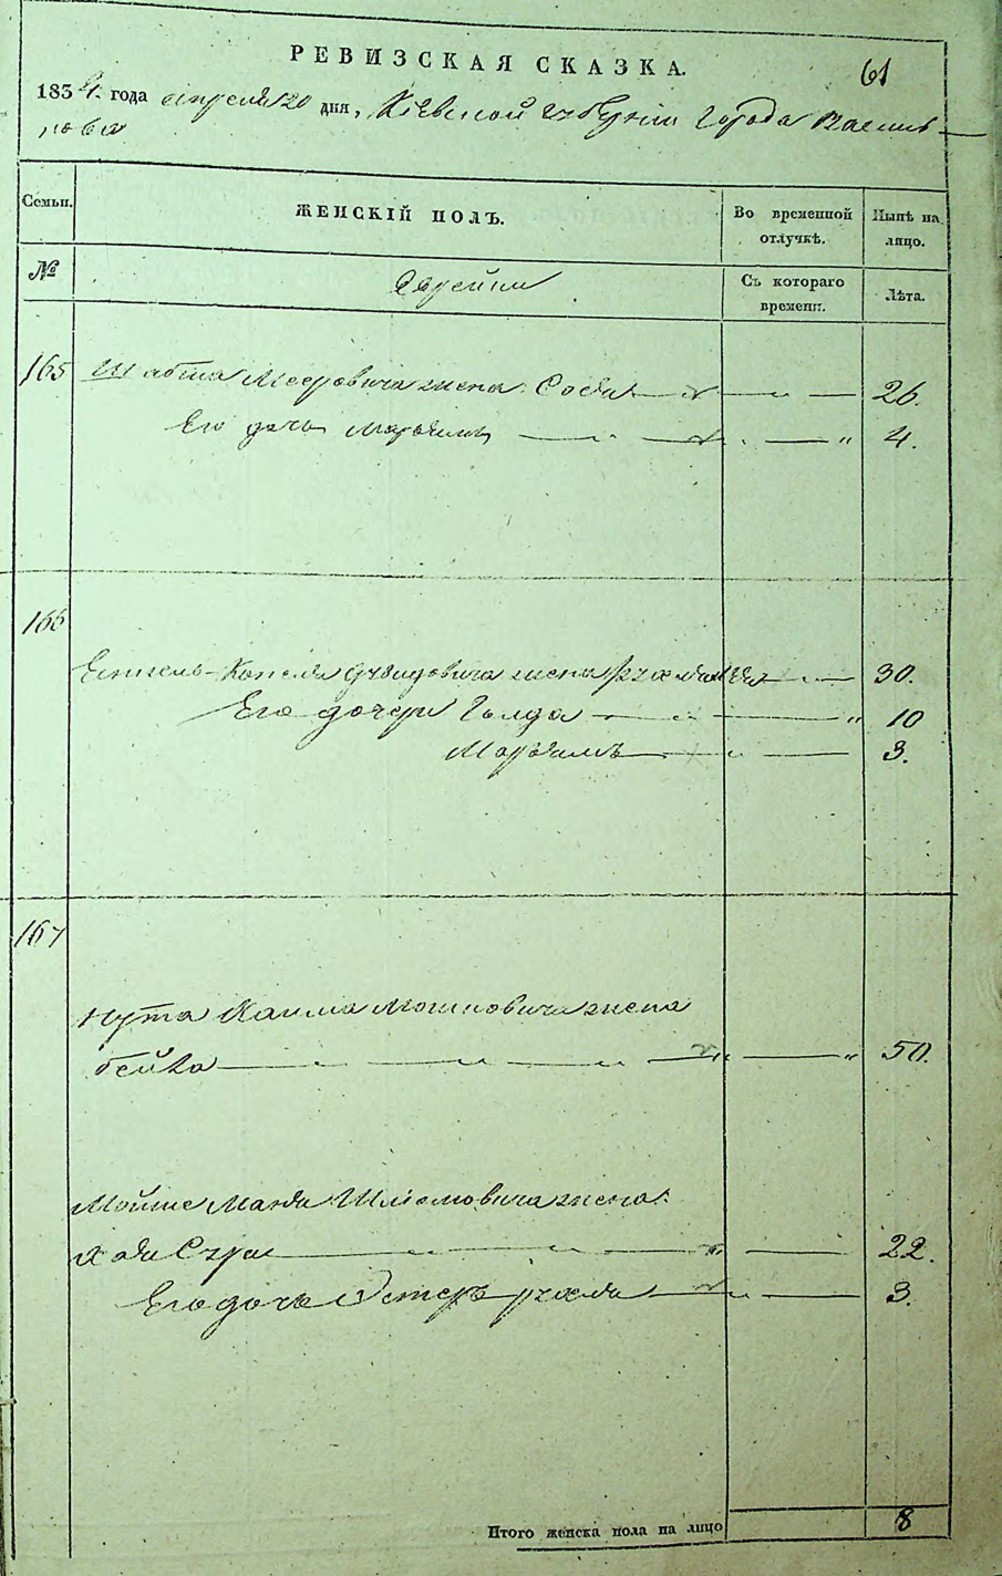 РЕВИЗСКАЯ СКАЗКА.
61
1834. года апреля 20 дня, Кіевской губерніи города Василь-
кова
Семьи. ЖЕНСКІЙ ПОЛЪ. Во временной отлучкѣ. Нынѣ на лицо.
№ Еврейки Съ котораго времени. Лѣта.
165 Шабта Мееровича жена Собля 26.
Его дочь Марьямъ " 4.
166
Копеля Давидовича жена 30.
Его дочери Голда " 10
Марьямъ 3.
167
Нута Хаима Мошковича жена
бейла " 50.
Мойше Шліомовича жена
Хая Сура 22.
Его дочь Эстеръ рухля 3.
Итого женска пола на лицо 8